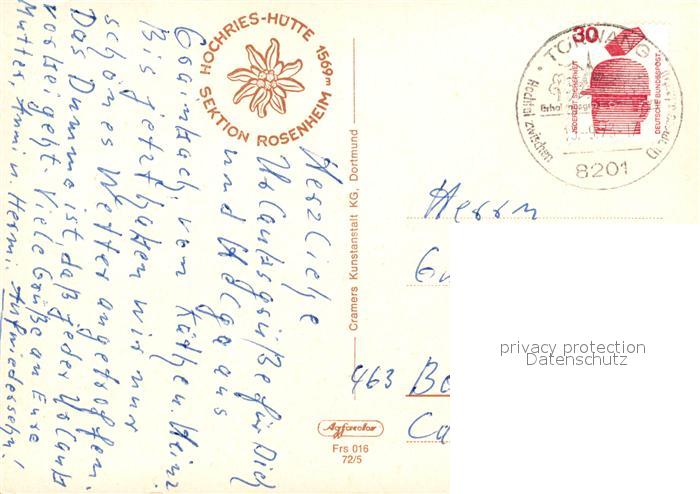 HOCHRIES-HÜTTE 1569 m
SEKTION ROSENHEIM
Herzliche
Urlaubsgrüße für Dich
und Helga aus
Grainbach, von Käthen. Heinz
Bis jetzt haben wir nur
schönes Wetter angetroffen.
Das Dumme ist, daß jeder Urlaub
vorbeigeht. Viele Grüße an Eure
Mutter, Anni u. Hermi. Aufwiedersehn!
Cramers Kunstanstalt KG, Dortmund
30
JEDERZEIT SICHERHEIT
DEUTSCHE BUNDESPOST
Hochtal zwischen
8201
Herrn
463 Bo
Agfacolor
Frs 016
72/5
privacy protection
Datenschutz